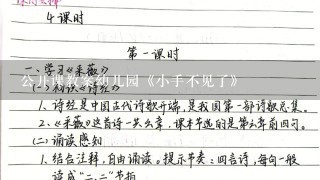 4课时
第一课时
一、学习《采薇》
(一)初识《诗经》
公开课教案幼儿园《小手不见了》
1、诗经是中国古代诗歌开端,是我国第一部诗歌总集。
2、《采薇》这首诗一共六章,课本节选的是第六章前四句。
(二)诵读感知
1、结合注释,自由诵读。提示节奏:四言诗,每句一般
读成"二、二"节拍